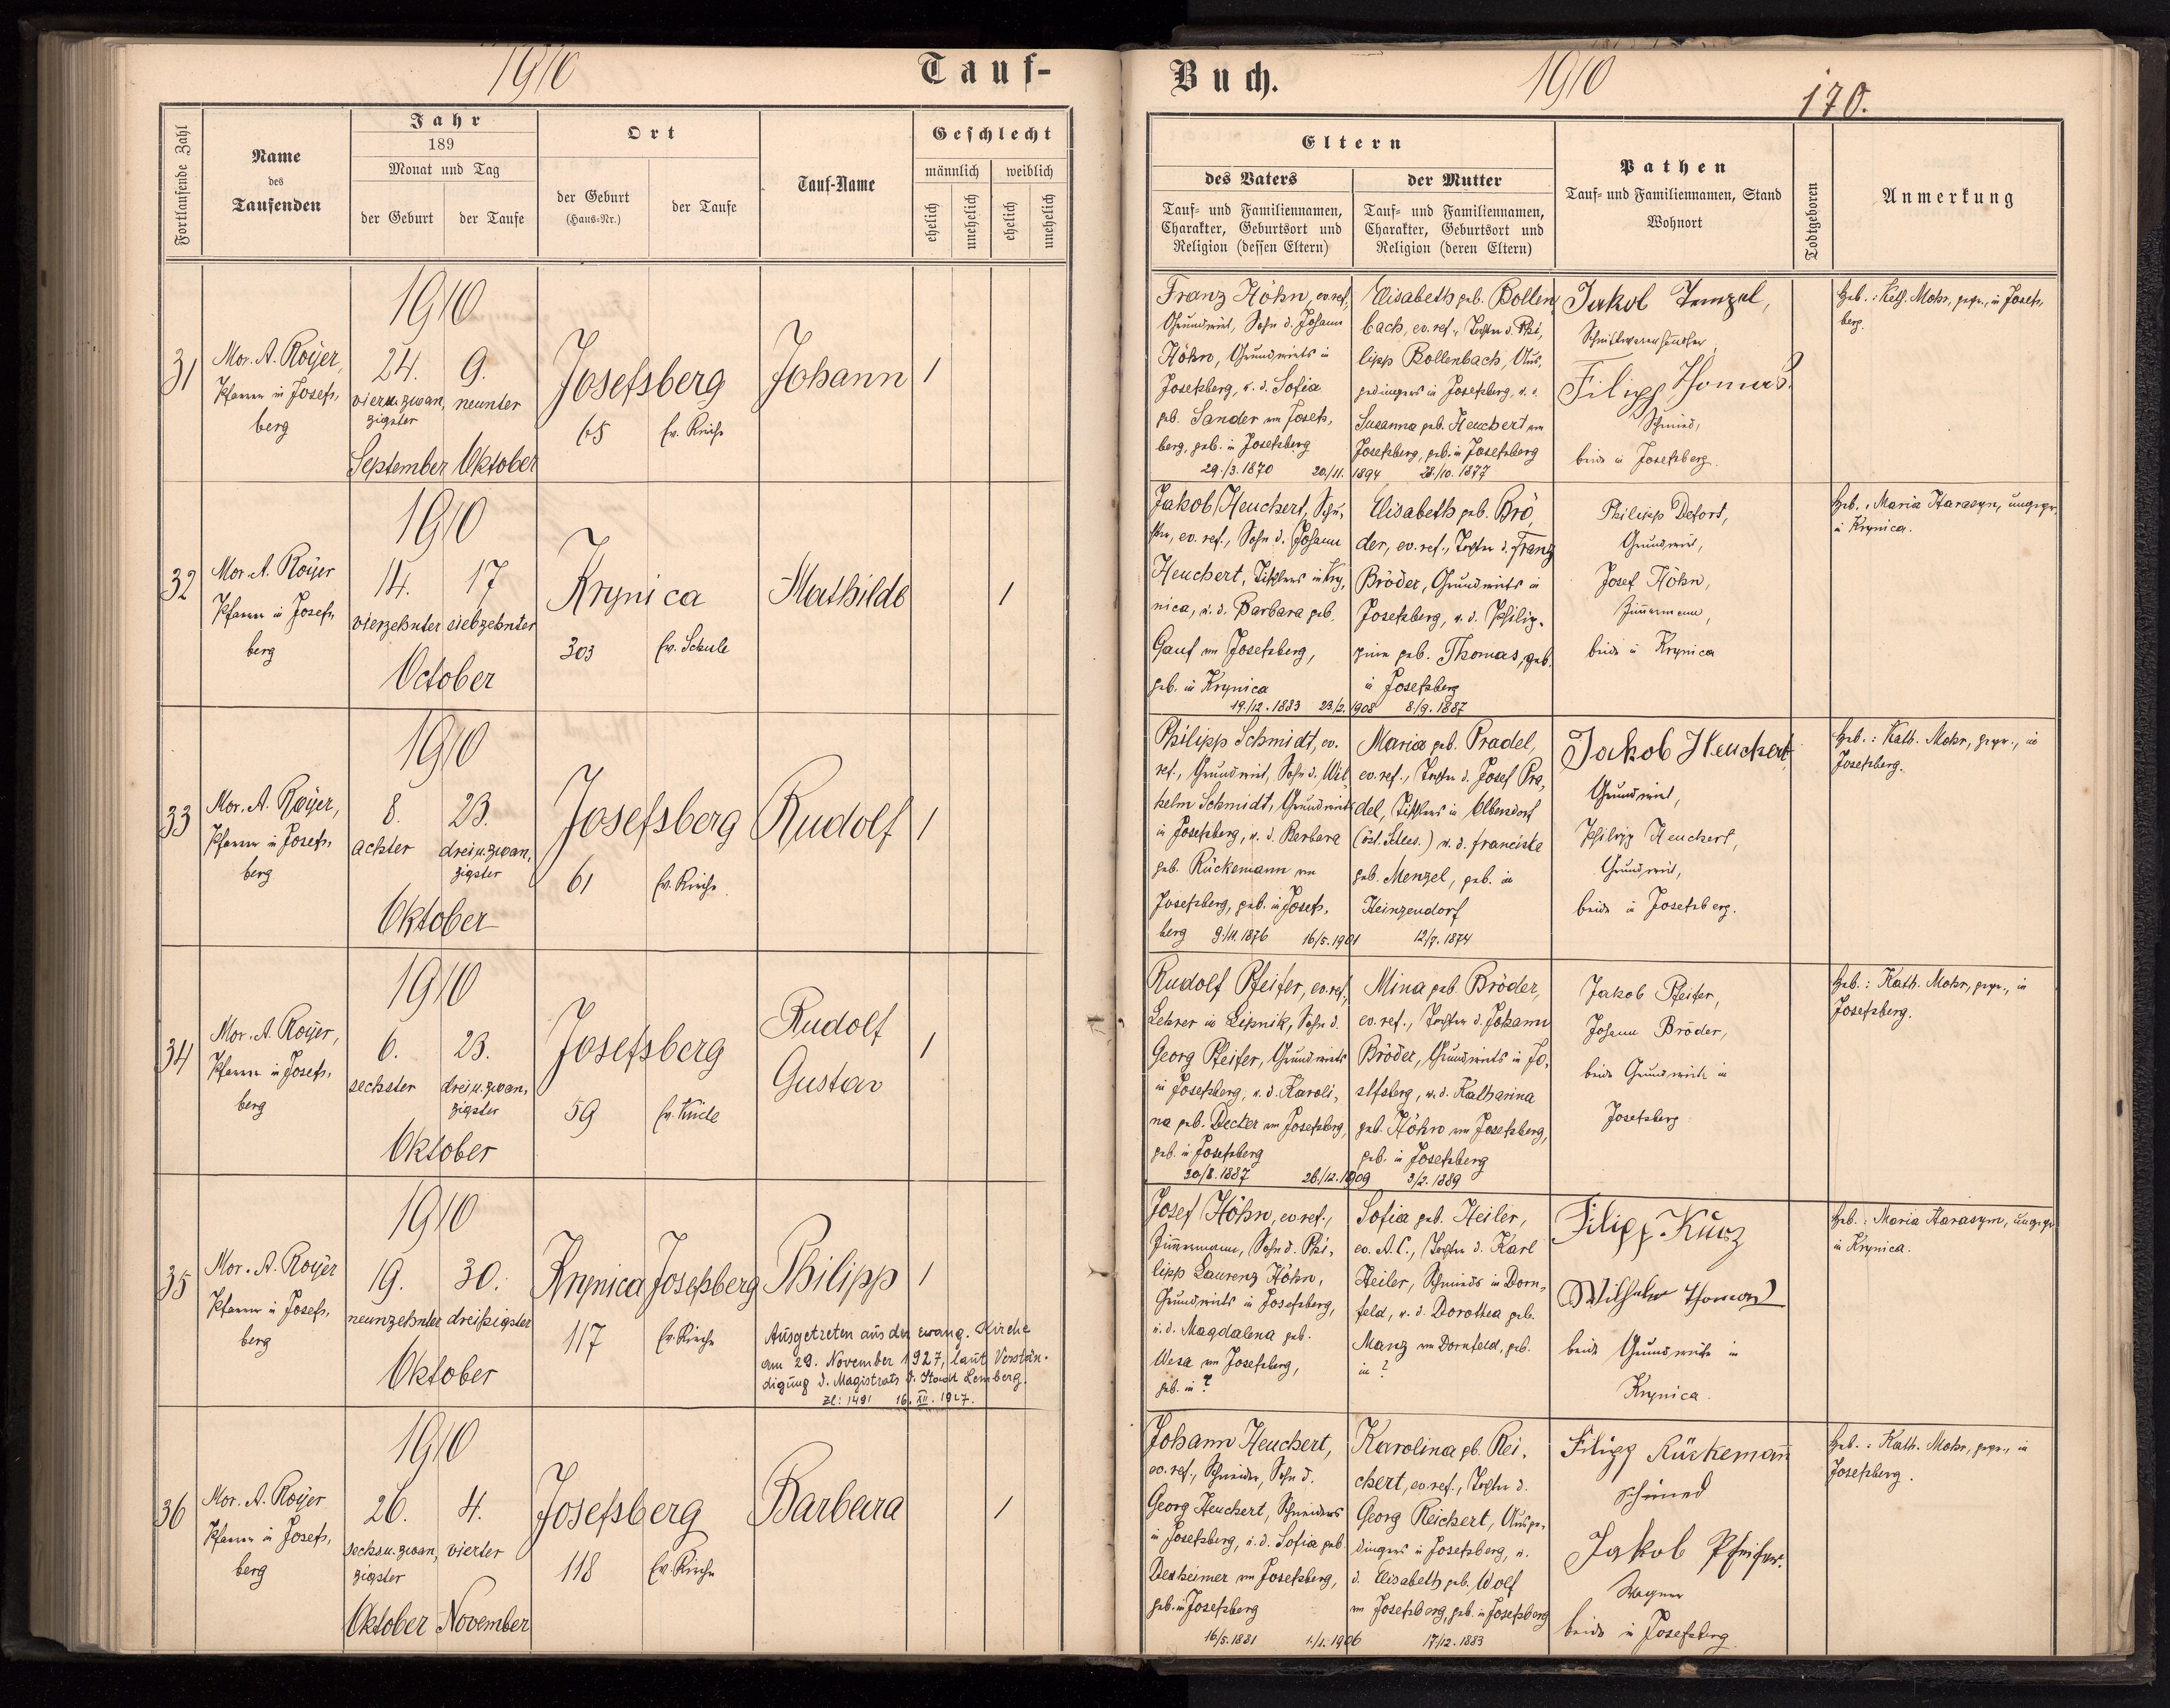 1910
Tauf-
Fortlaufende Zahl
Name
des
Taufenden
Jahr
189
Monat und Tag
der Geburt
der Taufe
Ort
der Geburt
(Haus-Nr.)
der Taufe
Tauf-Name
Geschlecht
männlich
weiblich
ehelich
unehelich
ehelich
unehelich
31
Mor. A. Royer,
Pfarrer in Josefs,
berg
1910
24. 9.
vieru.zwan, neunter
zigster
September Oktober
Josefsberg
65 Ev. Kirche
Johann
1
32
Mor. A. Royer
Pfarrer in Josefs,
berg
1910
14. 17
vierzehnter siebzehnter
October
Krynica
303 Ev. Schule
Mathilde
1
33
Mor. A. Royer,
Pfarrer in Josefs,
berg
1910
8. 23.
achter drei u. zwan,
zigster
Oktober
Josefsberg
61 Ev. Kirche
Rudolf
1
34
Mor. A. Royer,
Pfarrer in Josefs,
berg
1910
6. 23.
sechster drei u. zwan,
zigster
Oktober
Josefsberg
59 Ev. Kirche
Rudolf
Gustav
1
35
Mor. A. Royer
Pfarrer in Josefs,
berg
1910
19. 30.
neunzehnter dreißigster
Oktober
Krynica Josefsberg
117 Ev. Kirche
Philipp
1
Ausgetreten aus der evang. Kirche
am 29. November 1927, laut Verstän-
digung d. Magistrats d. Stadt Lemberg.
Zl: 1491 16. XII. 1927.
36
Mor. A. Royer
Pfarrer in Josefs,
berg
1910
26. 4.
sechsu. zwan, vierter
zigster
Oktober November
Josefsberg
118 Ev. Kirche
Barbara
1
Buch.
1910
170.
Eltern
des Vaters
Tauf- und Familiennamen,
Charakter, Geburtsort und
Religion (dessen Eltern)
der Mutter
Tauf- und Familiennamen,
Charakter, Geburtsort und
Religion (deren Eltern)
Pathen
Tauf- und Familiennamen, Stand
Wohnort
Todtgeboren
Anmerkung
Franz Höhn, ev.ref.,
Grundwirt, Sohn d. Johann
Höhn, Grundwirts in
Josefsberg, u. d. Sofia
geb. Sander von Josefs,
berg, geb. in Josefsberg
29./3.1870 20./11. 1894 28./10. 1877
Elisabeth geb. Bollen,
bach, ev.ref., Tochter d. Phi,
lipp Bollenbach, Aus,
gedingers in Josefsberg, u. d.
Susanna geb. Heuchert von
Josefsberg, geb. in Josefsberg
Jakob
Filipp Thomas.
Schmied,
beide in Josefsberg.
Heb.: Kath. Mohr, gepr., in Josefs,
berg.
Jakob Heuchert, Schu,
ster, ev. ref., Sohn d. Johann
Heuchert, Tischlers in Kry,
nica, u. d. Barbara geb.
Gauf von Josefsberg,
geb. in Krynica
19./12. 1883 23./2. 1908 8./9. 1887
Elisabeth geb. Brö,
der, ev.ref., Tochter d. Franz
Bröder, Grundwirts in
Josefsberg, u. d. Philip-
pine geb. Thomas, geb.
in Josefsberg
Philipp Defort,
Grundwirt,
Josef Höhn,
Zimmermann,
beide in Krynica
Heb.: Maria Harasym, ungepr.
in Krynica.
Philipp Schmidt, ev.
ref., Grundwirt, Sohn d. Wil,
helm Schmidt, Grundwirts
in Josefsberg, u. d. Barbara
geb. Rückemann von
Josefsberg, geb. in Josefs,
berg 9./11. 1876 16/5. 1901 12/7. 1874
Maria geb. Pradel,
ev.ref., Tochter d. Josef Pra,
del, Tischlers in Olbersdorf
(öst. Schles.) u. d. Franciska
geb. Menzel, geb. in
Heinzendorf
Jakob Heuchert,
Grundwirt,
Philipp Heuchert,
Grundwirt,
beide in Josefsberg.
Heb.: Kath. Mohr, gepr., in
Josefsberg.
Rudolf Pfeifer, ev.ref.,
Lehrer in Lipnik, Sohn d.
Georg Pfeifer, Grundwirts
in Josefsberg, u. d. Karoli,
na geb. Decker von Josefsberg,
geb. in Josefsberg
30/8. 1887 26./12. 1909 3/2. 1889
Mina geb. Bröder,
ev. ref., Tochter d. Johann
Bröder, Grundwirts in Jo,
sefsberg, u. d. Katharina
geb. Höhn von Josefsberg,
geb. in Josefsberg
Jakob Pfeifer,
Johann Bröder,
beide Grundwirte in
Josefsberg
Heb.: Kath. Mohr, gepr., in
Josefsberg.
Josef Höhn, ev.ref.,
Zimmermann, Sohn d. Phi,
lipp Laurenz Höhn,
Grundwirts in Josefsberg,
u. d. Magdalena geb.
Wesa von Josefsberg,
geb. in ?
Sofia geb. Heiler,
ev. A.C., Tochter d. Karl
Heiler, Schmieds in Dorn,
feld, u. d. Dorothea geb.
Manz von Dornfeld, geb.
in ?
Filipp Kurz
Wilhelm Thomas
beide Grundwirte in
Krynica.
Heb.: Maria Harasym, ungepr.
in Krynica.
Johann Heuchert,
ev. ref., Schneider, Sohn d.
Georg Heuchert, Schneiders
in Josefsberg, u. d. Sofia geb.
Dexheimer von Josefsberg,
geb. in Josefsberg
16/5. 1881 1./1. 1906 17/12. 1883
Karolina gb. Rei,
chert, ev.ref., Tochter d.
Georg Reichert, Ausge,
dingers in Josefsberg, u.
d. Elisabeth geb. Wolf
von Josefsberg, geb. in Josefsberg
Filipp Rückemann
Schmied
Jakob Pfeifer.
Wagner
beide in Josefsberg
Heb.: Kath. Mohr, gepr., in
Josefsberg.